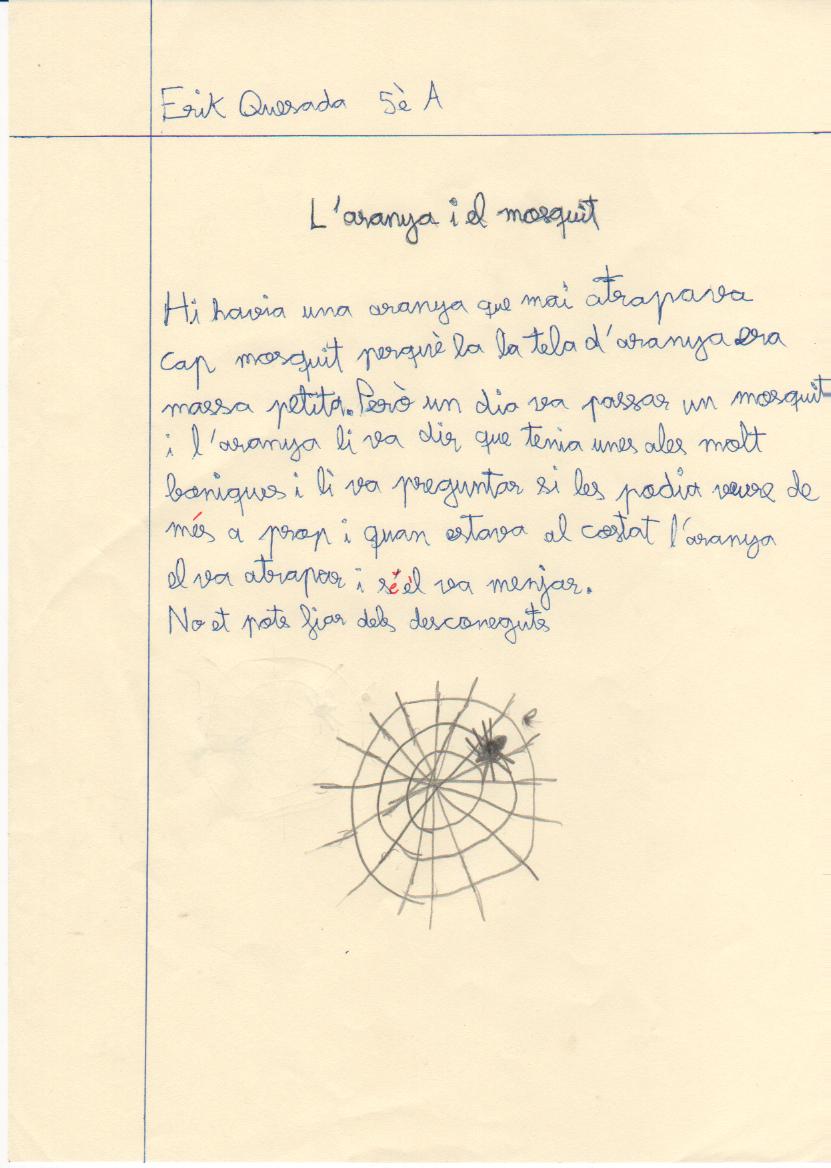 Erik Quesada 5è A
L'aranya i el mosquit
Hi havia una aranya que mai atrapava
cap mosquit perquè la la tela d'aranya era
massa petita. Però un dia va passar un mosquit
i l'aranya li va dir que tenia unes ales molt
boniques i li va preguntar si les podia veure de
més a prop i quan estava al costat l'aranya
el va atrapar i se'l va menjar.
No et pots fiar dels desconeguts